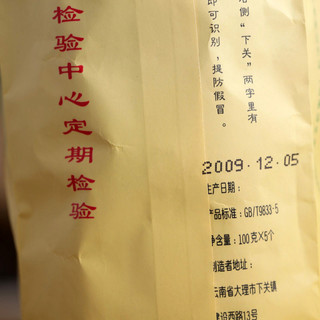 检验中心定期检验
侧“下关”两字里有
即可识别，提防假冒。
2009.12.05
生产日期：
产品标准：GB/T9833·5
净含量：100克×5个
制造者地址：
云南省大理市下关镇
建设西路13号